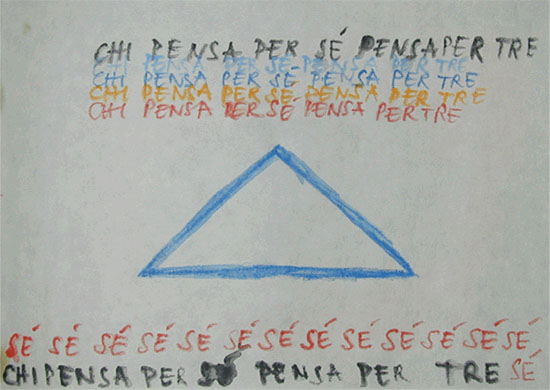 CHI PENSA PER SÉ PENSA PER TRE
CHI PENSA PER SE-PENSA PER TRE
CHI PENSA PER SE PENSA PER TRE
CHI PENSA PER SE PENSA PER TRE
CHI PENSA PER SÉ PENSA PER TRE
SÉ SÉ SÉ SÉ SÉ SÉ SÉ SÉ SÉ SÉ SÉ SÉ SÉ
CHI PENSA PER SÉ PENSA PER TRE SÉ